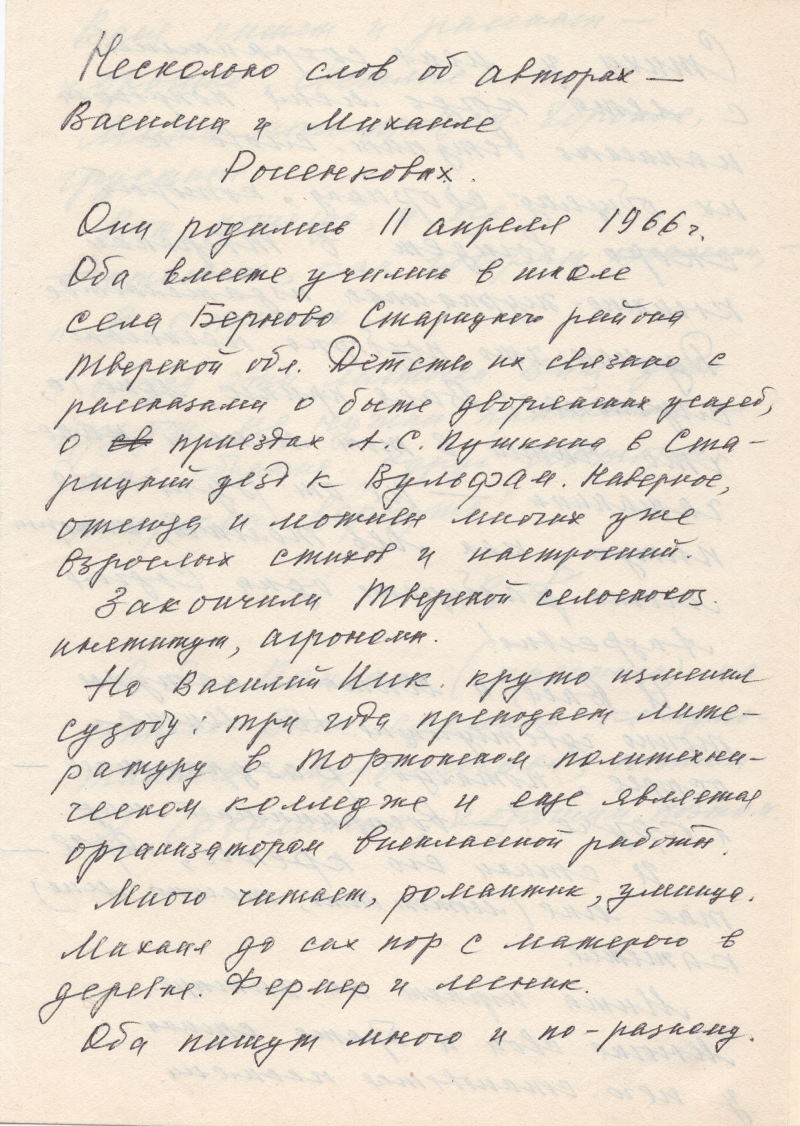 Несколько слов об авторах —
Василии и Михаиле
Рысенковых.
Они родились 11 апреля 1966 г.
Оба вместе учились в школе
села Берново Старицкого района
Тверской обл. Детство их связано с
рассказами о быте дворянских усадеб,
о приездах А.С. Пушкина в Ста-
рицкий уезд к Вульфам. Наверное,
отсюда и мотивы многих уже
взрослых стихов и настроений.
Закончили Тверской сельскохоз.
институт, агрономы.
Но Василий Ник. круто изменил
судьбу: три года преподает лите-
ратуру в Торжокском политехни-
ческом колледже и еще является
организатором внеклассной работы.
Много читает, романтик, умница.
Михаил до сих пор с матерью в
деревне. Фермер и лесник.
Оба пишут много и по-разному.